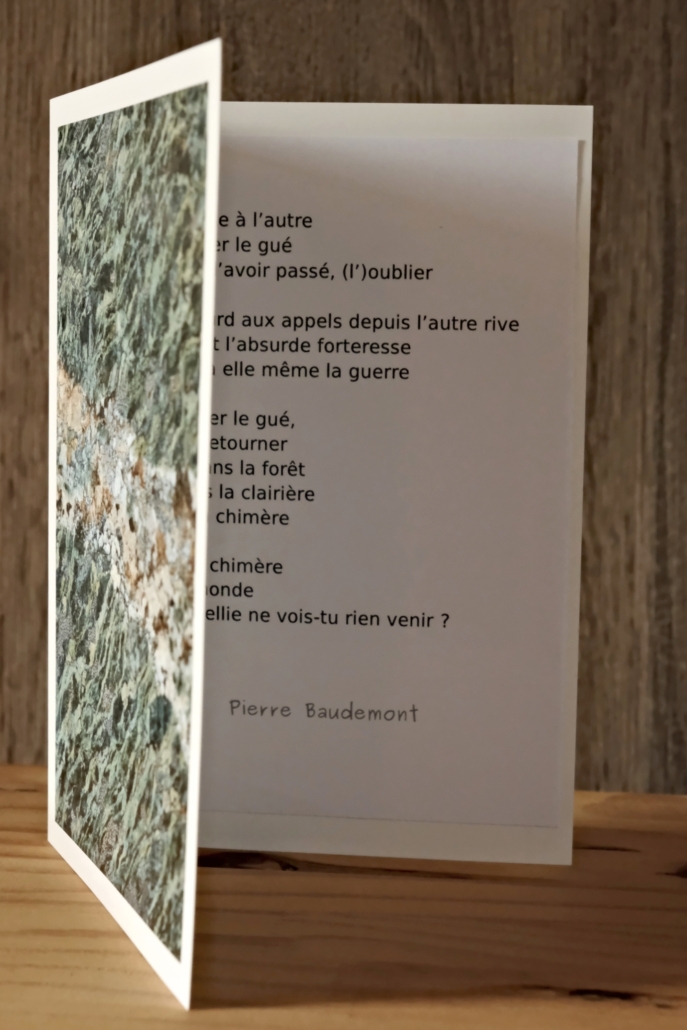 e à l’autre
er le gué
’avoir passé, (l’)oublier
rd aux appels depuis l’autre rive
t l’absurde forteresse
elle même la guerre
er le gué,
etourner
ns la forêt
s la clairière
chimère
chimère
onde
ellie ne vois-tu rien venir ?
Pierre Baudemont